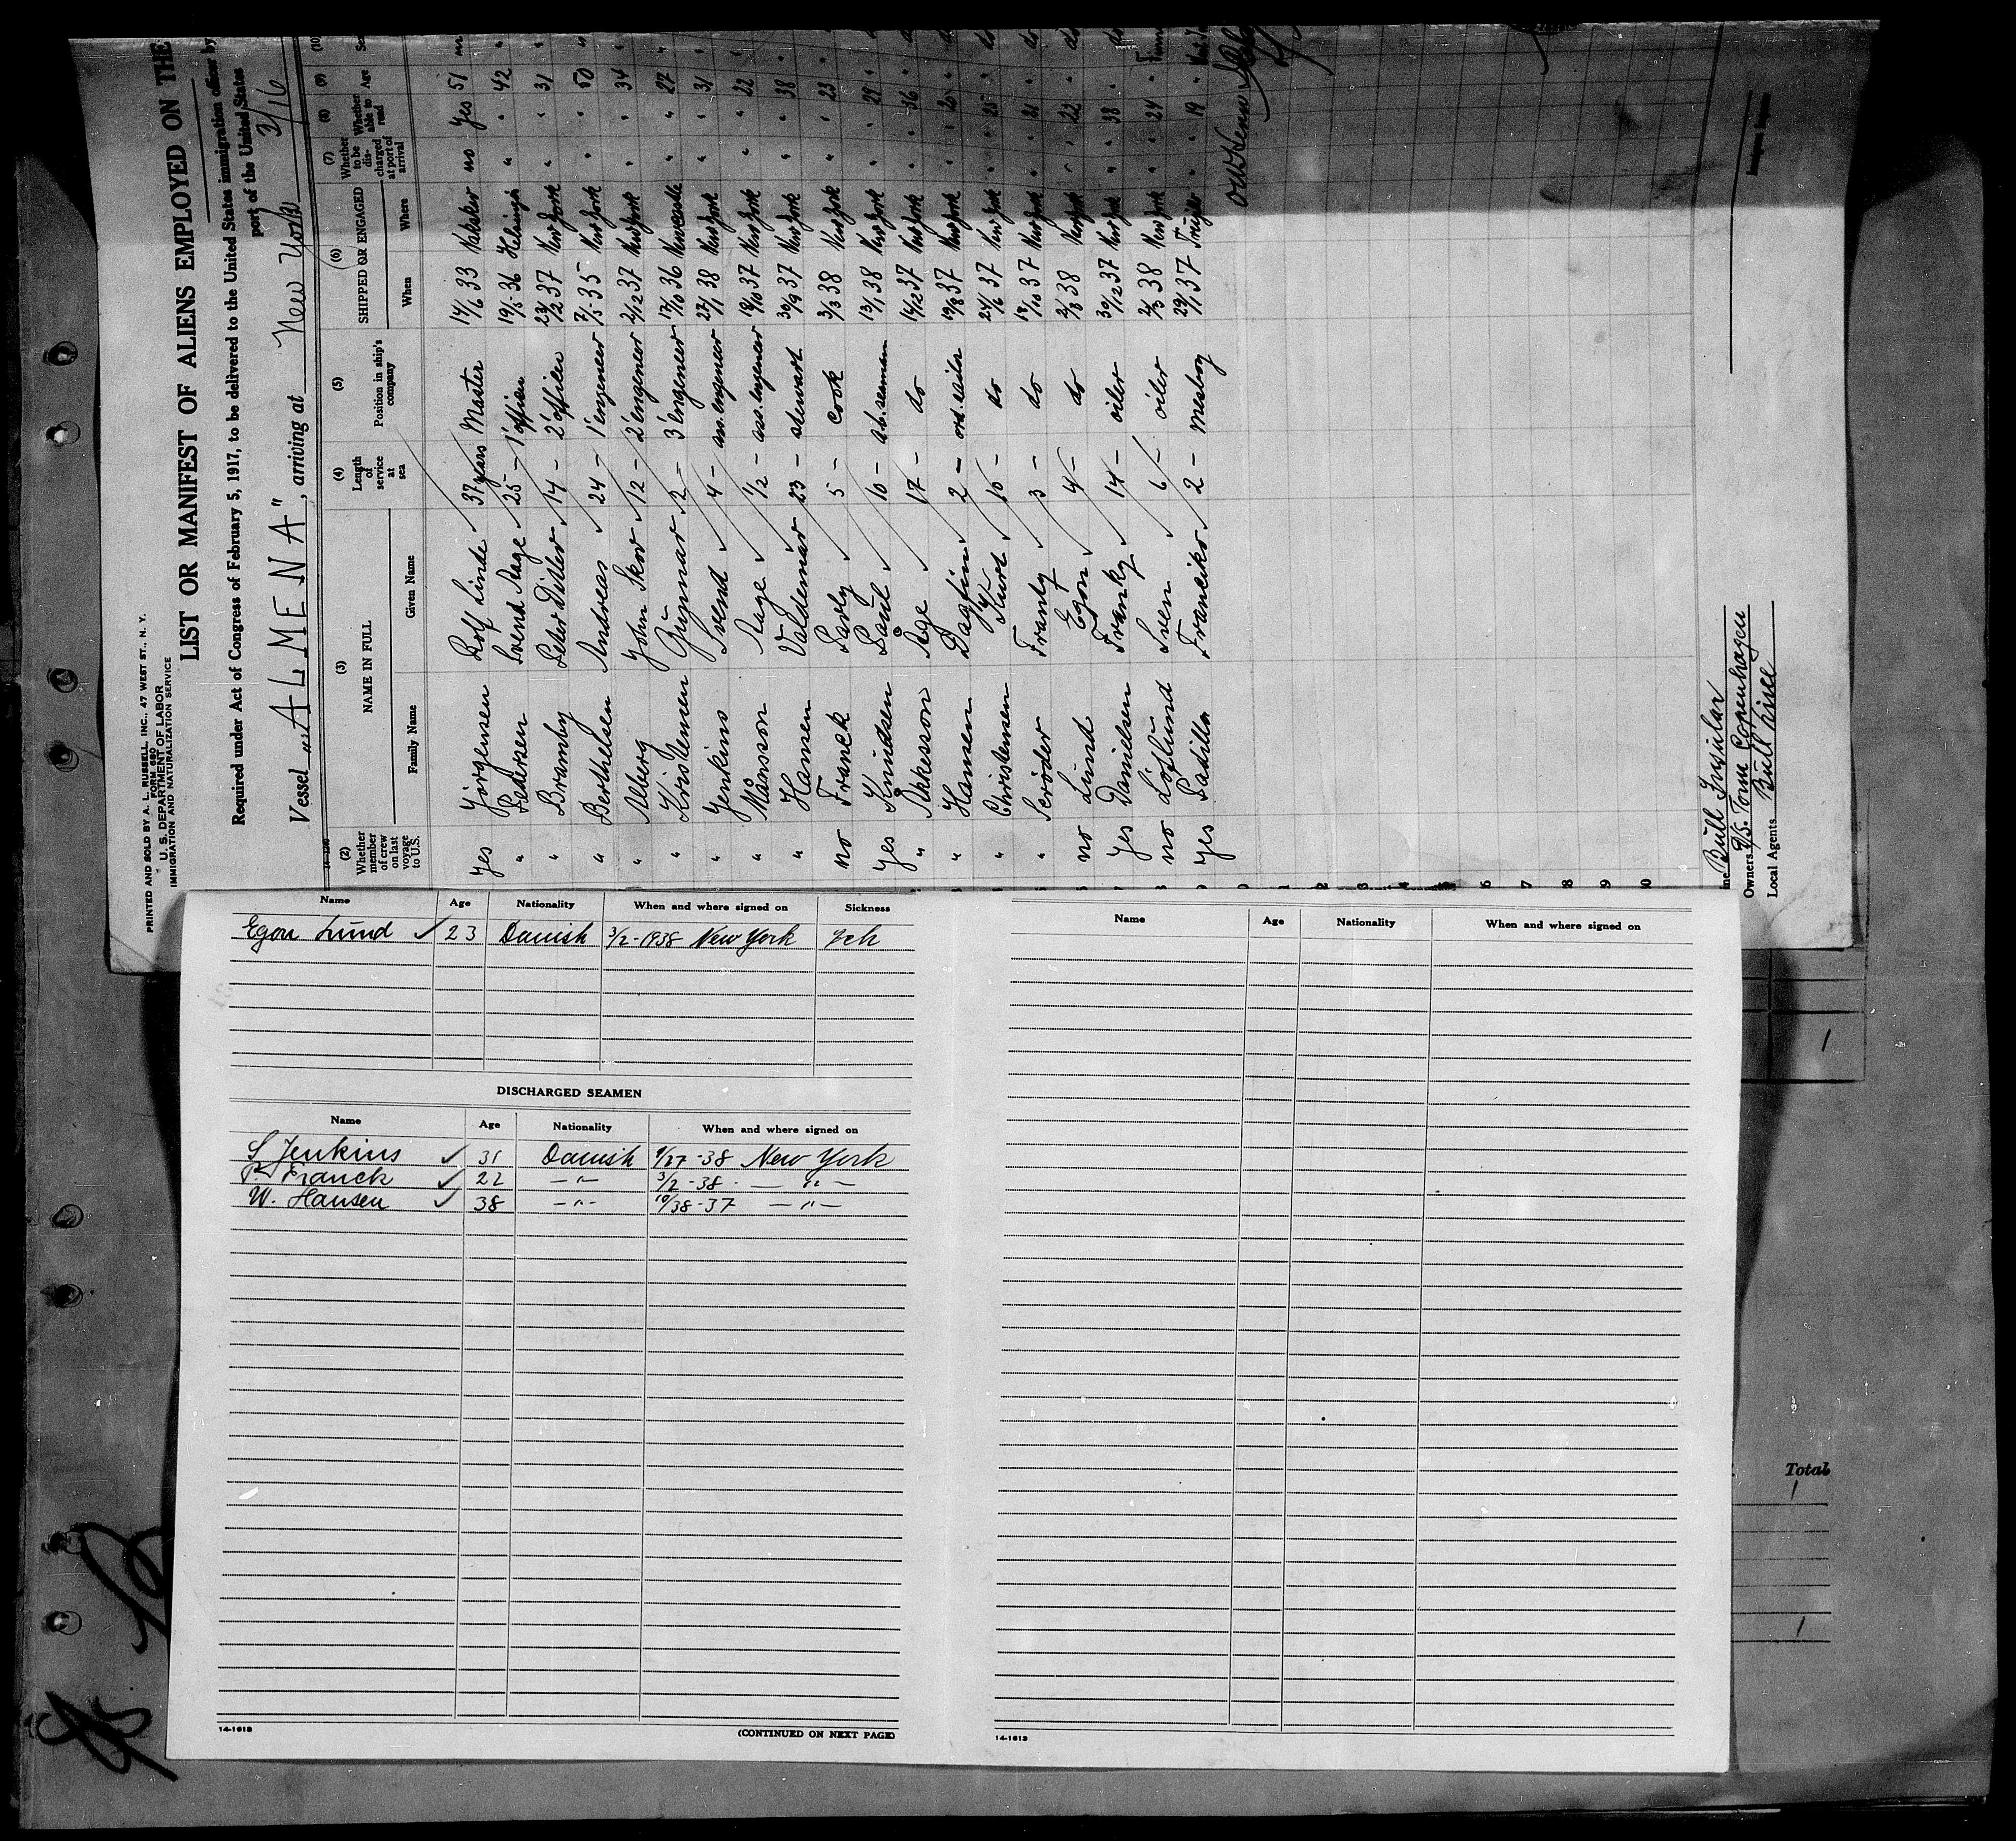 PRINTED AND SOLD BY A. L. RUSSELL, INC., 47 WEST ST., N. Y.
FORM 680
U. S. DEPARTMENT OF LABOR
IMMIGRATION AND NATURALIZATION SERVICE
LIST OR MANIFEST OF ALIENS EMPLOYED ON THE
Required under Act of Congress of February 5, 1917, to be delivered to the United States immigration officer by
port of the United States
Vessel "ALMENA", arriving at New York 3/16
(2) Whether member of crew on last voyage to U.S. (3) NAME IN FULL Family Name Given Name (4) Length of service at sea (5) Position in ship's company (6) SHIPPED OR ENGAGED When Where (7) Whether to be discharged at port of arrival (8) Whether able to read (9) Age (10)
yes Jörgensen Rolf Linde 37 years Master 14/6 33 no yes 51
" Pedersen Svend Aage 25 - 1' officer 19/5-36 " " 42
" Bramby Peter Ditlev 14 - 2' officer 23/2 37 New York " " 31
" Berthelsen Andreas 24 - 1' engeneer 7/5-35 New York " " 50
" Alberg John Skov 12 - 2' engeneer 2/12 37 New York " " 34
" Kristensen Gunnar 2 - 3' engeneer 17/10 36 Newcastle " " 27
" Jenkins Svend 4 - ass. engeneer 27/1 38 New York " " 31
" Månsson Aage 1/2 - ass. engeneer 18/10 37 New York " " 22
" Hansen Valdemar 23 - stewart 30/9 37 New York " " 38
no Franck Parly 5 - cook 3/3 38 New York " " 23
yes Knudsen Paul 10 - ab. seaman 13/1 38 New York " " 29
" Akkesson Åge 17 - do 14/12 37 New York " " 36
" Hansen Dagfin 2 - ord. sailor 19/8 37 New York " " 20
" Christensen Kurt 10 - do 24/6 37 New York " " 25
" Scröder Frantz 3 - do 18/10 37 New York " " 21
no Lund Egon 4 - do 2/3 38 New York " " 22
yes Danielsen Franky 14 - oiler 30/12 37 New York " " 38
no Löflund Sven 6 - oiler 2/3 38 New York " " 24
yes Padilla Francisko 2 - mesboy 29/1 37 " " 19
Bull Insular
Owners D/S. Torm Copenhagen
Local Agents Bull Line
Name Age Nationality When and where signed on Sickness
Egon Lund 23 Danish 3/2-1938 New York
DISCHARGED SEAMEN
Name Age Nationality When and where signed on
S Jenkins 31 Danish 1/27-38 New York
P. Franck 22 -"- 3/2-38 -"-
W. Hansen 38 -"- 10/38-37 -"-
14-1613 (CONTINUED ON NEXT PAGE)
Name Age Nationality When and where signed on
14-1613
1
Total
1
1